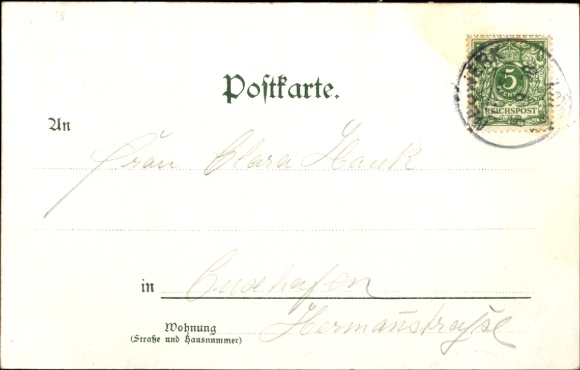 Postkarte.
5
PFENNIG
REICHSPOST
An
Frau Clara Hauk
in Cuxhafen
Wohnung
(Straße und Hausnummer)
Hermannstraße